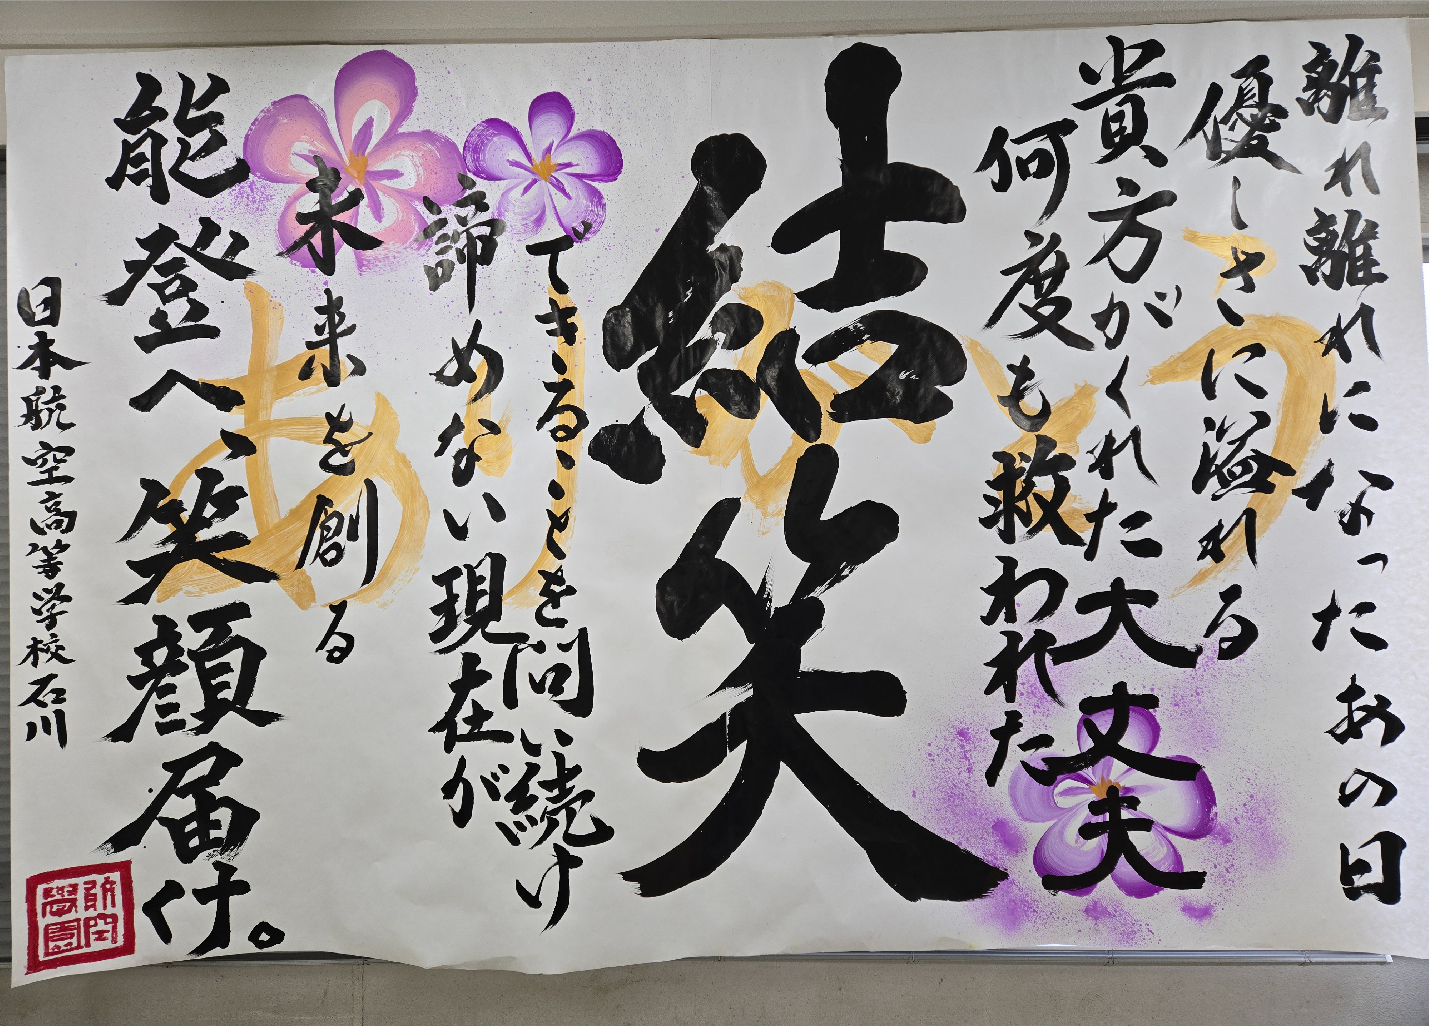 離れ離れになったあの日
優しさに溢れる
貴方がくれた大丈夫
何度も救われた
結笑
できることを問い続け
諦めない現在が
未来を創る
能登へ、笑顔届け。
日本航空高等学校石川
ありがとう
航空
學園